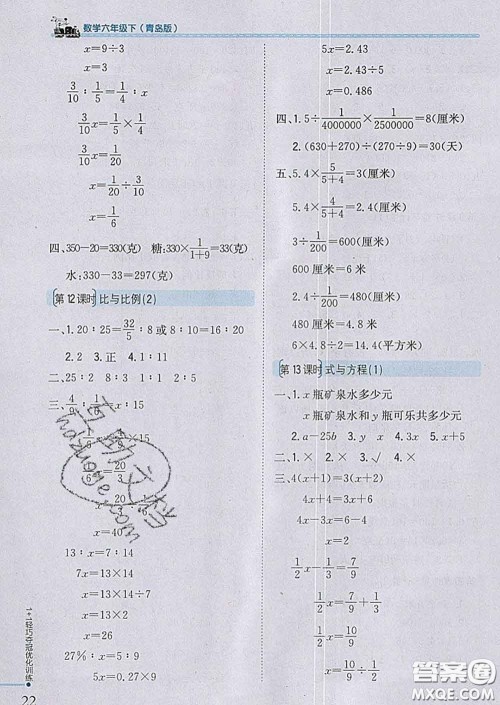 数学六年级下(青岛版)
x=9÷3
x=3
3/10∶1/5=1/4∶x
3/10x=1/5×1/4
3/10x=1/20
x=1/20÷3/10
x=1/6
四、350-20=330(克) 糖:330×1/(1+9)=33(克)
水:330-33=297(克)
第12课时 比与比例(2)
一、1.20∶25=32/5∶8或8∶10=16∶20
2.2 3.正 4.1∶1
二、25∶2 8∶15
三、4/9∶1/6=x∶15
1/6x=4/9×15
1/6x=20/3
x=20/3÷1/6
x=40
13∶7=x∶14
7x=13×14
x=13×14÷7
x=13×2
x=26
27%∶x=5∶9
5x=0.27×9
5x=2.43
x=2.43÷5
x=0.486
四、1.5÷1/4000000×1/2500000=8(厘米)
2.(630+270)÷(270÷9)=30(天)
五、5.4×5/(5+4)=3(厘米)
5.4×4/(5+4)=2.4(厘米)
3÷1/200=600(厘米)
600厘米=6米
2.4÷1/200=480(厘米)
480厘米=4.8米
6×4.8÷2=14.4(平方米)
第13课时 式与方程(1)
一、1.x瓶矿泉水多少元
x瓶矿泉水和y瓶可乐共多少元
2.a-25b 3.x 4.x+5
二、1.× 2.× 3.√ 4.×
三、4(x+1)=3(x+2)
4x+4=3x+6
4x-3x=6-4
x=2
1/2x-1/3=7/9
1/2x=7/9+1/3
1/2x=10/9
x=10/9÷1/2
1+1轻巧夺冠优化训练
22
答案圈
MXQE.COM